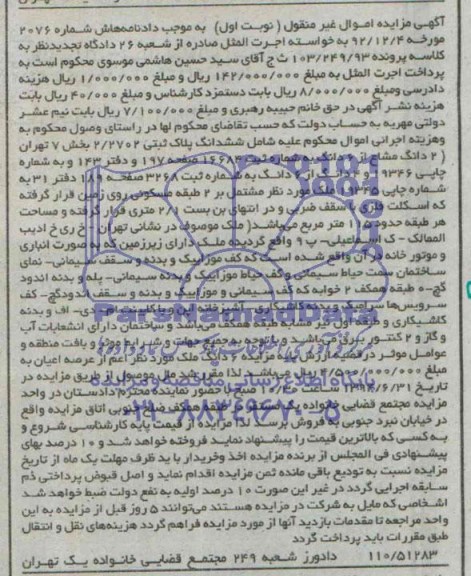 آگهی مزایده اموال غیر منقول ( نوبت اول) به موجب دادنامه‌هاش شماره ۲۰۷۶
مورخه ۹۲/۱۲/۴ به خواسته اجرت المثل صادره از شعبه ۲۶ دادگاه تجدیدنظر به
کلاسه پرونده ۱۰۳/۲۴۹/۹۳ ث ج آقای سید حسین هاشمی موسوی محکوم است به
پرداخت اجرت المثل به مبلغ ۱۴۲/۰۰۰/۰۰۰ ریال و مبلغ ۱/۰۰۰/۰۰۰ ریال هزینه
دادرسی ومبلغ ۸/۰۰۰/۰۰۰ ریال بابت دستمزد کارشناس و مبلغ ۴۰/۰۰۰ ریال بابت
هزینه نشر آگهی در حق خانم حبیبه رهبری و مبلغ ۷/۱۰۰/۰۰۰ ریال بابت نیم عشر
دولتی مهریه به حساب دولت که حسب تقاضای محکوم لها در راستای وصول محکوم به
وهزینه اجرایی اموال محکوم علیه شامل ششدانگ پلاک ثبتی ۲/۲۷۰۲ بخش ۷ تهران
( ۲ دانگ مشاع از دانگ به شماره ثبت ۱۶۶۸۳ صفحه ۱۹۷ و دفتر ۱۴۳ و به شماره
چاپی ۹۳۴۶ و دانگ از دانگ به شماره ثبت صفحه ۱۸۹ دفتر ۳۱ به
شماره چاپی ملک مورد نظر مشتمل بر ۲ طبقه مسکونی روی زمین قرار گرفته
که اسکلت فلزی با سقف ضربی و در انتهای بن بست ۲/۸۰ متری قرار گرفته و مساحت
هر طبقه حدود متر مربع می‌باشد ( ملک موصوف در نشانی تهران خ ری خ ادیب
الممالک - ک اسماعیلی- پ ۹ واقع گردیده ملک دارای زیرزمین که به صورت انباری
و موتور خانه در آن واقع شده است که کف موزاییک و بدنه و سقف سیمانی- نمای
ساختمان سمت حیاط سیمانی و کف حیاط موزاییک و بدنه سیمانی- پله و بدنه اندود
گچ- طبقه همکف ۲ خوابه که کف سیمانی و موزاییک و بدنه و سقف اندودگچ- کف
سرویس‌ها سرامیک و بدنه کاشیکاری- آشپزخانه اف و بدنه
کاشیکاری و طبقه اول نیز مشابه طبقه همکف می‌باشد و ساختمان دارای انشعابات آب
و گاز و ۲ کنتور برق می‌باشد و با توجه به جمیع جهات و شرایط و بافت منطقه و
عوامل موثر در قضیه ارزش پایه مزایده ۲ دانگ ملک مورد نظر اعم از عرصه اعیان به
مبلغ ریال می‌باشد لذا مقرر شد مال موصوف از طریق مزایده در
تاریخ ۱۳۹۴/۶/۳۱ ساعت ۱۰ صبح با حضور نماینده محترم دادستان در واحد
مزایده مجتمع قضایی خانواده یک طبقه همکف جنوبی اتاق مزایده واقع
در خیابان نبرد جنوبی به فروش برسد مزایده از قیمت پایه کارشناسی شروع و
به کسی که بالاترین قیمت را پیشنهاد نماید فروخته خواهد شد و ۱۰ درصد بهای
پیشنهادی فی المجلس از برنده مزایده اخذ وخریدار با ید ظرف مهلت یک ماه از تاریخ
مزایده نسبت به تودیع باقی مانده ثمن مزایده اقدام نماید و اصل قبوض پرداختی ذم
سابقه اجرایی گردد در غیر این صورت ۱۰ درصد اولیه به نفع دولت ضبط خواهد شد
اشخاصی که مایل به شرکت در مزایده هستند می‌توانند ۵ روز قبل از مزایده به این
واحد مراجعه تا مقدمات بازدید آنها از مورد مزایده فراهم گردد هزینه‌های نقل و انتقال
طبق مقررات باید پرداخت گردد
۱۱۰/۵۱۲۸۳ دادورز شعبه ۲۴۹ مجتمع قضایی خانواده یک تهران
ParsNamadData
پایگاه اطلاع رسانی مناقصه و مزایده
۰۲۱-۸۸۳۴۹۶۷۰-۵